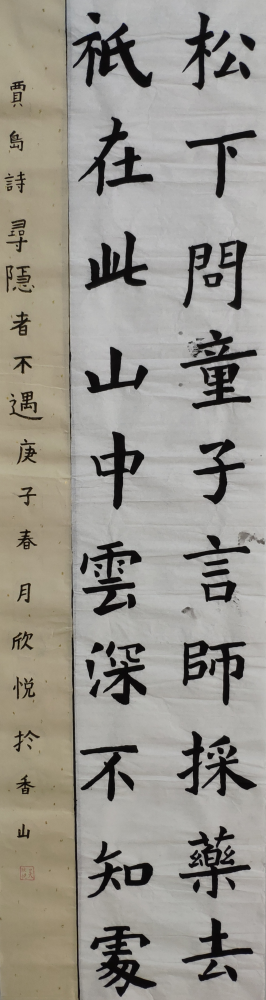 松下問童子言師採藥去
祇在此山中雲深不知處
賈島詩尋隱者不遇庚子春月欣悦於香山